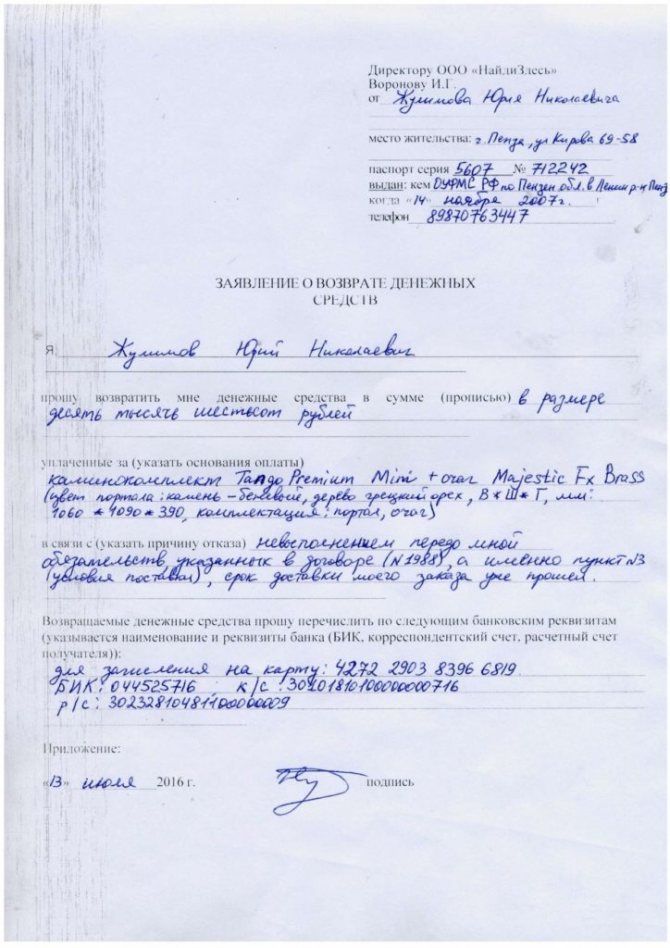 Директору ООО «НайдиЗдесь»
Воронову И.Г.
от Жулимова Юрия Николаевича
место жительства: г. Пенза, ул Кирова 69-58
паспорт серия 5607 № 712242
выдан: кем ОУФМС РФ по Пензен обл. в Ленин р-не
когда «14» ноября 2007г.
телефон 89870763447
ЗАЯВЛЕНИЕ О ВОЗВРАТЕ ДЕНЕЖНЫХ
СРЕДСТВ
Я, Жулимов Юрий Николаевич
прошу возвратить мне денежные средства в сумме (прописью) в размере
десять тысячь шестьсот рублей
уплаченные за (указать основания оплаты)
каминокомплект Tango Premium Mini + очаг Majestic Fx Brass
(цвет портала: камень - бежевый, дерево грецкий орех, В*Ш*Г, мм:
1060 * 1090 * 390, комплектация: портал, очаг)
в связи с (указать причину отказа) невосполнением передо мной
обязательств, указанных в договоре (N1988), а именно пункт N3
(условия поставки), срок доставки моего заказа уже прошел.
Возвращаемые денежные средства прошу перечислить по следующим банковским реквизитам
(указывается наименование и реквизиты банка (БИК, корреспондентский счет, расчетный счет
получателя)):
для зачисления на карту: 4272 2903 8396 6819.
БИК: 044525716 к/с: 30101810100000000716
р/с: 30232810481100000009
Приложение:
«13» июля 2016 г. подпись